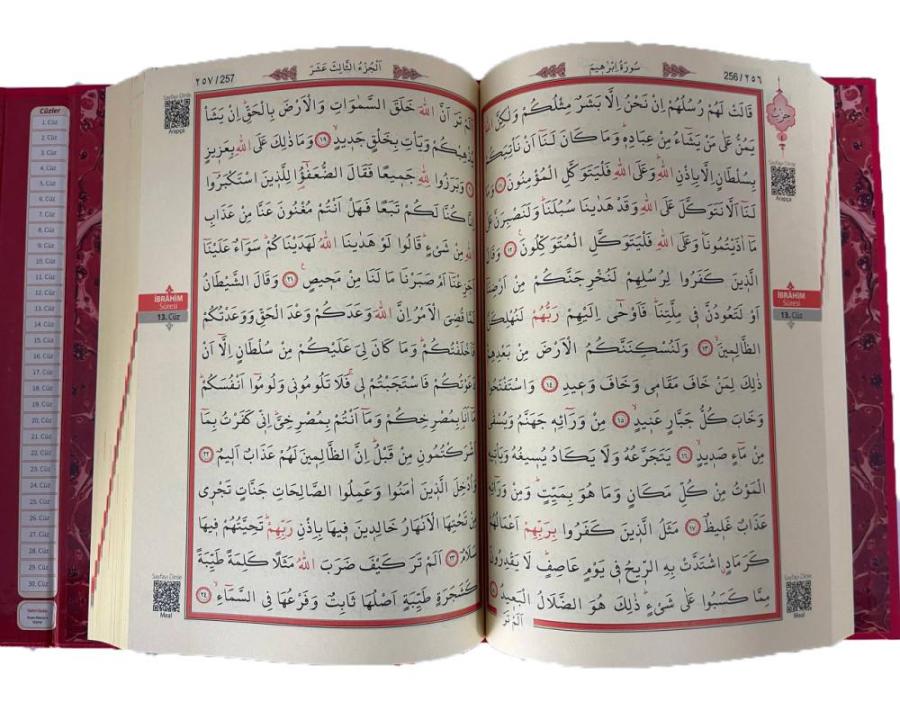 سُورَةُ اِبْرٰهِيمَ
256/٢٥٦
حزب
Sayfayı Dinle
Arapça
قَالَتْ لَهُمْ رُسُلُهُمْ اِنْ نَحْنُ اِلَّا بَشَرٌ مِثْلُكُمْ وَلٰكِنَّ
يَمُنُّ عَلٰى مَنْ يَشَٓاءُ مِنْ عِبَادِهٖ وَمَا كَانَ لَنَٓا اَنْ نَأْتِيَكُمْ
بِسُلْطَانٍ اِلَّا بِاِذْنِ اللّٰهِ وَعَلَى اللّٰهِ فَلْيَتَوَكَّلِ الْمُؤْمِنُونَ
لَنَٓا اَلَّا نَتَوَكَّلَ عَلَى اللّٰهِ وَقَدْ هَدٰينَا سُبُلَنَا وَلَنَصْبِرَنَّ
مَٓا اٰذَيْتُمُونَا وَعَلَى اللّٰهِ فَلْيَتَوَكَّلِ الْمُتَوَكِّلُونَ ١٢ وَقَالَ
الَّذٖينَ كَفَرُوا لِرُسُلِهِمْ لَنُخْرِجَنَّكُمْ مِنْ اَرْضِنَٓا
اَوْ لَتَعُودُنَّ فٖى مِلَّتِنَا فَاَوْحٰٓى اِلَيْهِمْ رَبُّهُمْ لَنُهْلِكَنَّ
الظَّالِمٖينَ ١٣ وَلَنُسْكِنَنَّكُمُ الْاَرْضَ مِنْ بَعْدِهِمْ
ذٰلِكَ لِمَنْ خَافَ مَقَامٖى وَخَافَ وَعٖيدِ ١٤ وَاسْتَفْتَحُوا
وَخَابَ كُلُّ جَبَّارٍ عَنٖيدٍ ١٥ مِنْ وَرَٓائِهٖ جَهَنَّمُ وَيُسْقٰى
مِنْ مَٓاءٍ صَدٖيدٍ ١٦ يَتَجَرَّعُهُ وَلَا يَكَادُ يُسٖيغُهُ وَيَأْتٖيهِ
الْمَوْتُ مِنْ كُلِّ مَكَانٍ وَمَا هُوَ بِمَيِّتٍ وَمِنْ وَرَٓائِهٖ
عَذَابٌ غَلٖيظٌ ١٧ مَثَلُ الَّذٖينَ كَفَرُوا بِرَبِّهِمْ اَعْمَالُهُمْ
كَرَمَادٍ اشْتَدَّتْ بِهِ الرّٖيحُ فٖى يَوْمٍ عَاصِفٍ لَا يَقْدِرُونَ
مِمَّا كَسَبُوا عَلٰى شَىْءٍ ذٰلِكَ هُوَ الضَّلَالُ الْبَعٖيدُ
اَلَمْ تَرَ
İBRÂHİM
Sûresi
13. Cüz
Sayfayı Dinle
Meal
اَلْجُزْءُ الثَّالِثَ عَشَرَ
٢٥٧/257
Sayfayı Dinle
Arapça
اَلَمْ تَرَ اَنَّ اللّٰهَ خَلَقَ السَّمٰوَاتِ وَالْاَرْضَ بِالْحَقِّ اِنْ يَشَأْ
يُذْهِبْكُمْ وَيَأْتِ بِخَلْقٍ جَدٖيدٍ ١٩ وَمَا ذٰلِكَ عَلَى اللّٰهِ بِعَزٖيزٍ
وَبَرَزُوا لِلّٰهِ جَمٖيعًا فَقَالَ الضُّعَفٰٓؤُا لِلَّذٖينَ اسْتَكْبَرُٓوا
اِنَّا كُنَّا لَكُمْ تَبَعًا فَهَلْ اَنْتُمْ مُغْنُونَ عَنَّا مِنْ عَذَابِ
اللّٰهِ مِنْ شَىْءٍ قَالُوا لَوْ هَدٰينَا اللّٰهُ لَهَدَيْنَاكُمْ سَوَٓاءٌ عَلَيْنَٓا
اَجَزِعْنَٓا اَمْ صَبَرْنَا مَا لَنَا مِنْ مَحٖيصٍ ٢١ وَقَالَ الشَّيْطَانُ
لَمَّا قُضِىَ الْاَمْرُ اِنَّ اللّٰهَ وَعَدَكُمْ وَعْدَ الْحَقِّ وَوَعَدْتُكُمْ
فَاَخْلَفْتُكُمْ وَمَا كَانَ لِىَ عَلَيْكُمْ مِنْ سُلْطَانٍ اِلَّٓا اَنْ
دَعَوْتُكُمْ فَاسْتَجَبْتُمْ لٖى فَلَا تَلُومُونٖى وَلُومُٓوا اَنْفُسَكُمْ
مَٓا اَنَا۬ بِمُصْرِخِكُمْ وَمَٓا اَنْتُمْ بِمُصْرِخِىَّ اِنّٖى كَفَرْتُ بِمَٓا
اَشْرَكْتُمُونِ مِنْ قَبْلُ اِنَّ الظَّالِمٖينَ لَهُمْ عَذَابٌ اَلٖيمٌ ٢٢
وَاُدْخِلَ الَّذٖينَ اٰمَنُوا وَعَمِلُوا الصَّالِحَاتِ جَنَّاتٍ تَجْرٖى
مِنْ تَحْتِهَا الْاَنْهَارُ خَالِدٖينَ فٖيهَا بِاِذْنِ رَبِّهِمْ تَحِيَّتُهُمْ فٖيهَا
سَلَامٌ ٢٣ اَلَمْ تَرَ كَيْفَ ضَرَبَ اللّٰهُ مَثَلًا كَلِمَةً طَيِّبَةً
كَشَجَرَةٍ طَيِّبَةٍ اَصْلُهَا ثَابِتٌ وَفَرْعُهَا فِى السَّمَٓاءِ ٢٤
İBRÂHİM
Sûresi
13. Cüz
Sayfayı Dinle
Meal
Cüzler
1. Cüz
2. Cüz
3. Cüz
4. Cüz
5. Cüz
6. Cüz
7. Cüz
8. Cüz
9. Cüz
10. Cüz
11. Cüz
12. Cüz
13. Cüz
14. Cüz
15. Cüz
16. Cüz
17. Cüz
18. Cüz
19. Cüz
20. Cüz
21. Cüz
22. Cüz
23. Cüz
24. Cüz
25. Cüz
26. Cüz
27. Cüz
28. Cüz
29. Cüz
30. Cüz